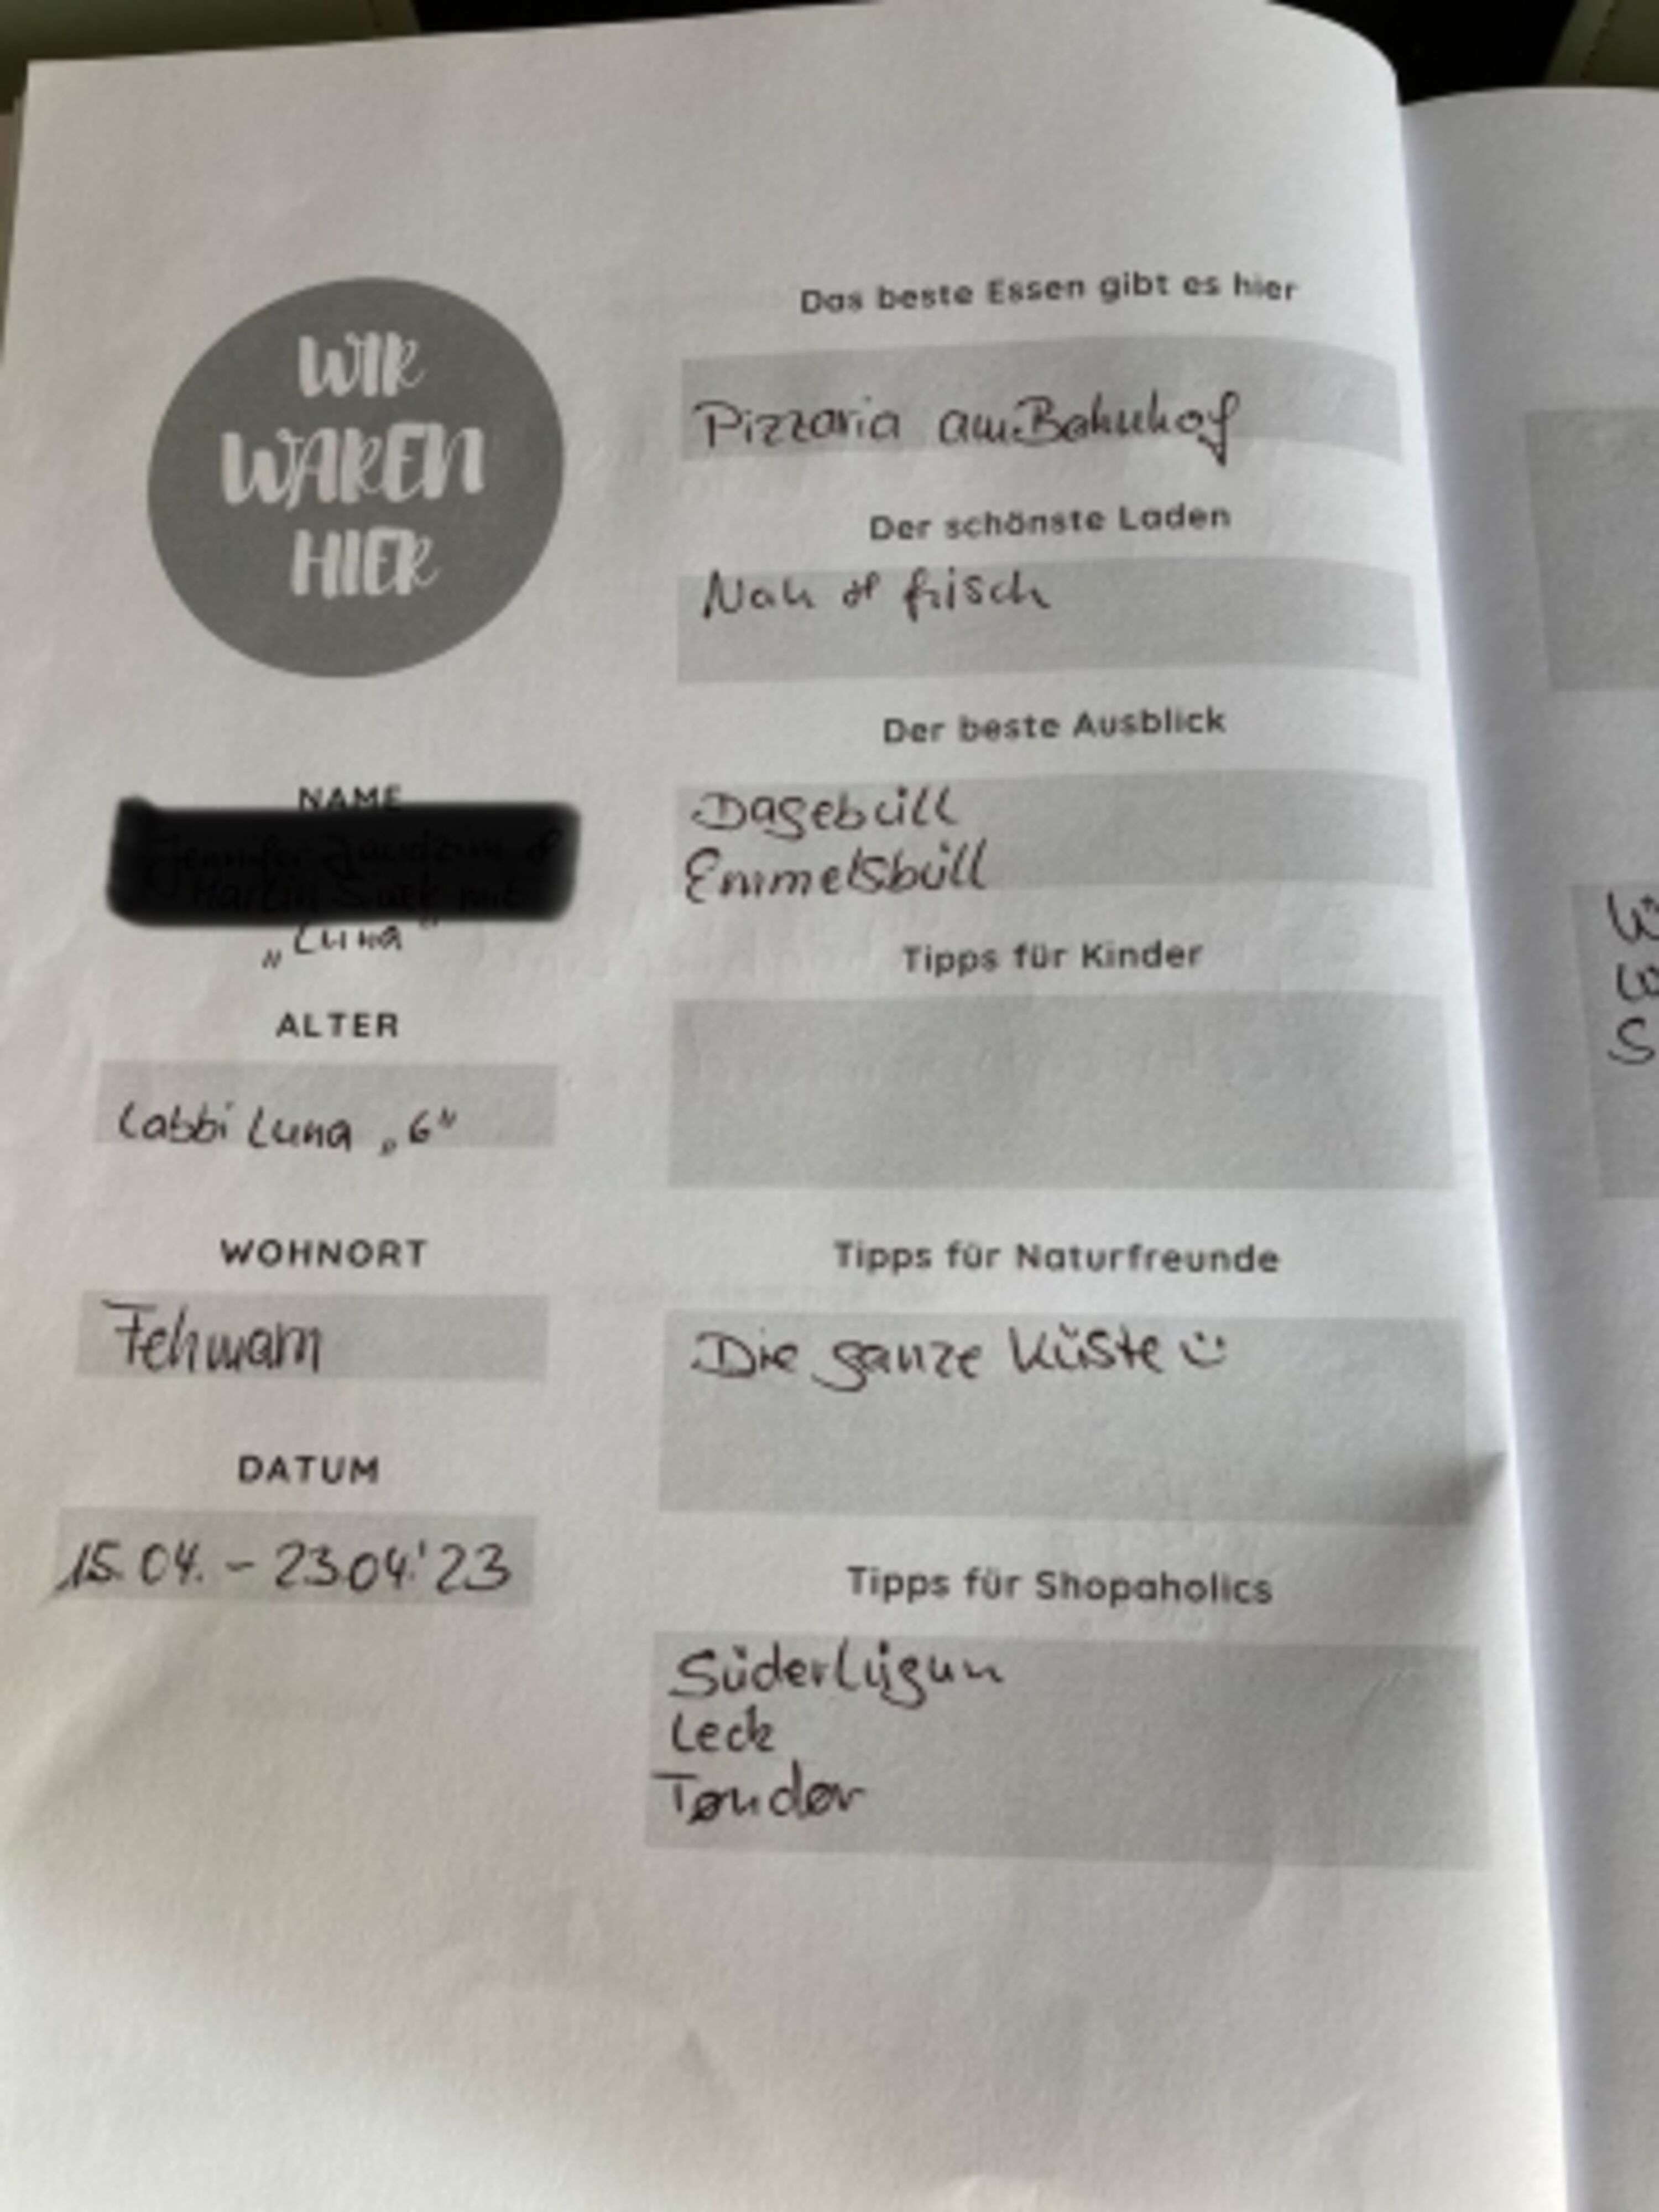 WIR
WAREN
HIER
NAME
„Luna"
ALTER
Labbi Luna „6"
WOHNORT
Fehmarn
DATUM
15.04. - 23.04.'23
Das beste Essen gibt es hier
Pizzaria am Bahnhof
Der schönste Laden
Nah & frisch
Der beste Ausblick
Dagebüll
Emmelsbüll
Tipps für Kinder
Tipps für Naturfreunde
Die ganze Küste
Tipps für Shopaholics
Süderlügum
Leck
Tønder